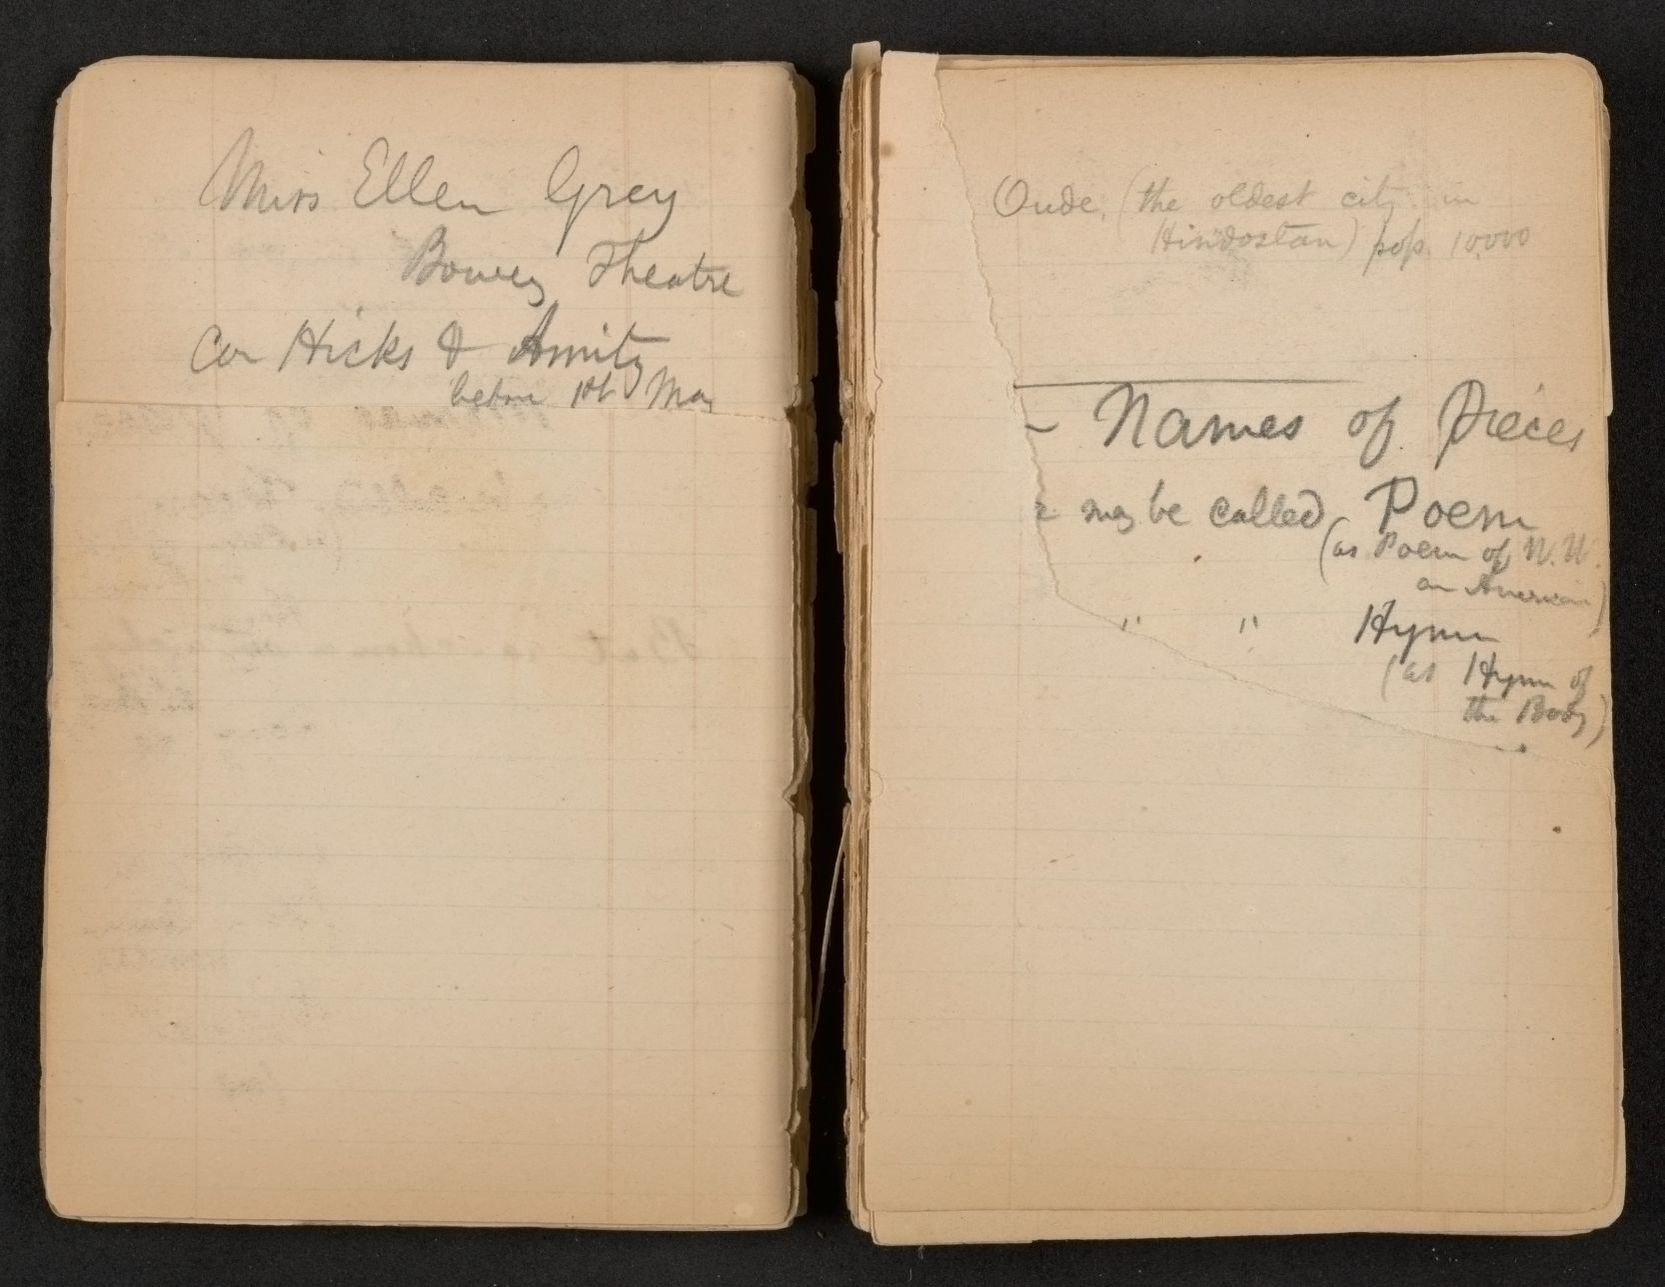 Miss Ellen Grey
Bowery Theatre
Cor Hicks & Amity
before 1st May
Oude, (the oldest city in
Hindostan) pop. 10,000
– Names of Pieces
may be called Poem
(as Poem of N. W.
an American)
" " Hymn
(as Hymn of
the Body)